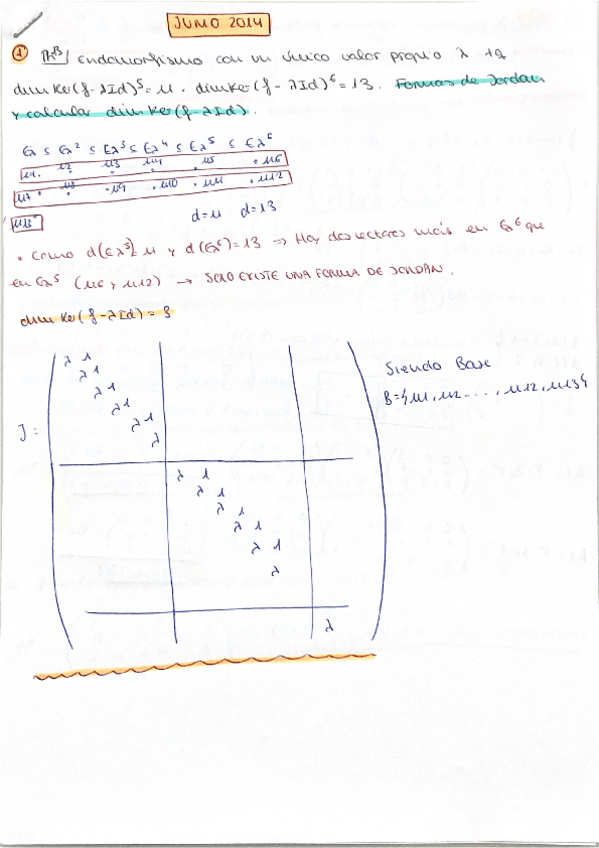 JUNIO 2014
1) ℝ¹³ endomorfismo con un único valor propio λ tq
dim Ker(f-λId)⁵ = 11 . dim Ker(f-λId)⁶ = 13. Formas de Jordan
y calcular dim Ker(f-λId).
Eλ ⊆ Eλ² ⊆ Eλ³ ⊆ Eλ⁴ ⊆ Eλ⁵ ⊆ Eλ⁶
u1 . u2 . u3 . u4 . u5 . u6
u7 . u8 . u9 . u10 . u11 . u12
u13
d=11 d=13
• Como d(Eλ⁵)=11 y d(Eλ⁶)=13 ⇒ Hay dos vectores más en Eλ⁶ que
en Eλ⁵ (u6 y u12) → SOLO EXISTE UNA FORMA DE JORDAN.
dim Ker(f-λId) = 3
J =
λ 1
λ 1
λ 1
λ 1
λ 1
λ
λ 1
λ 1
λ 1
λ 1
λ 1
λ
λ
Siendo Base
B={u1, u2 . . . , u12, u13}